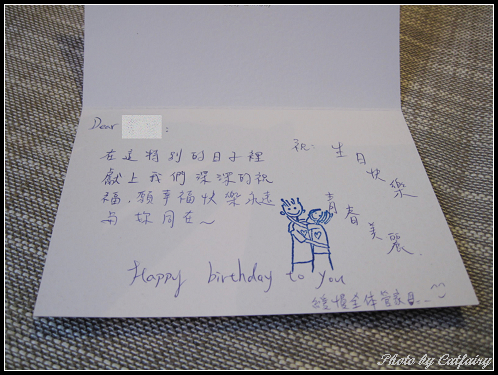 Dear :
在這特別的日子裡
獻上我們深深的祝
福,願幸福快樂永遠
與妳同在~
祝:生日
快樂
青春
美麗.
Happy birthday to you
緩慢全体管家
Photo by Catfairy